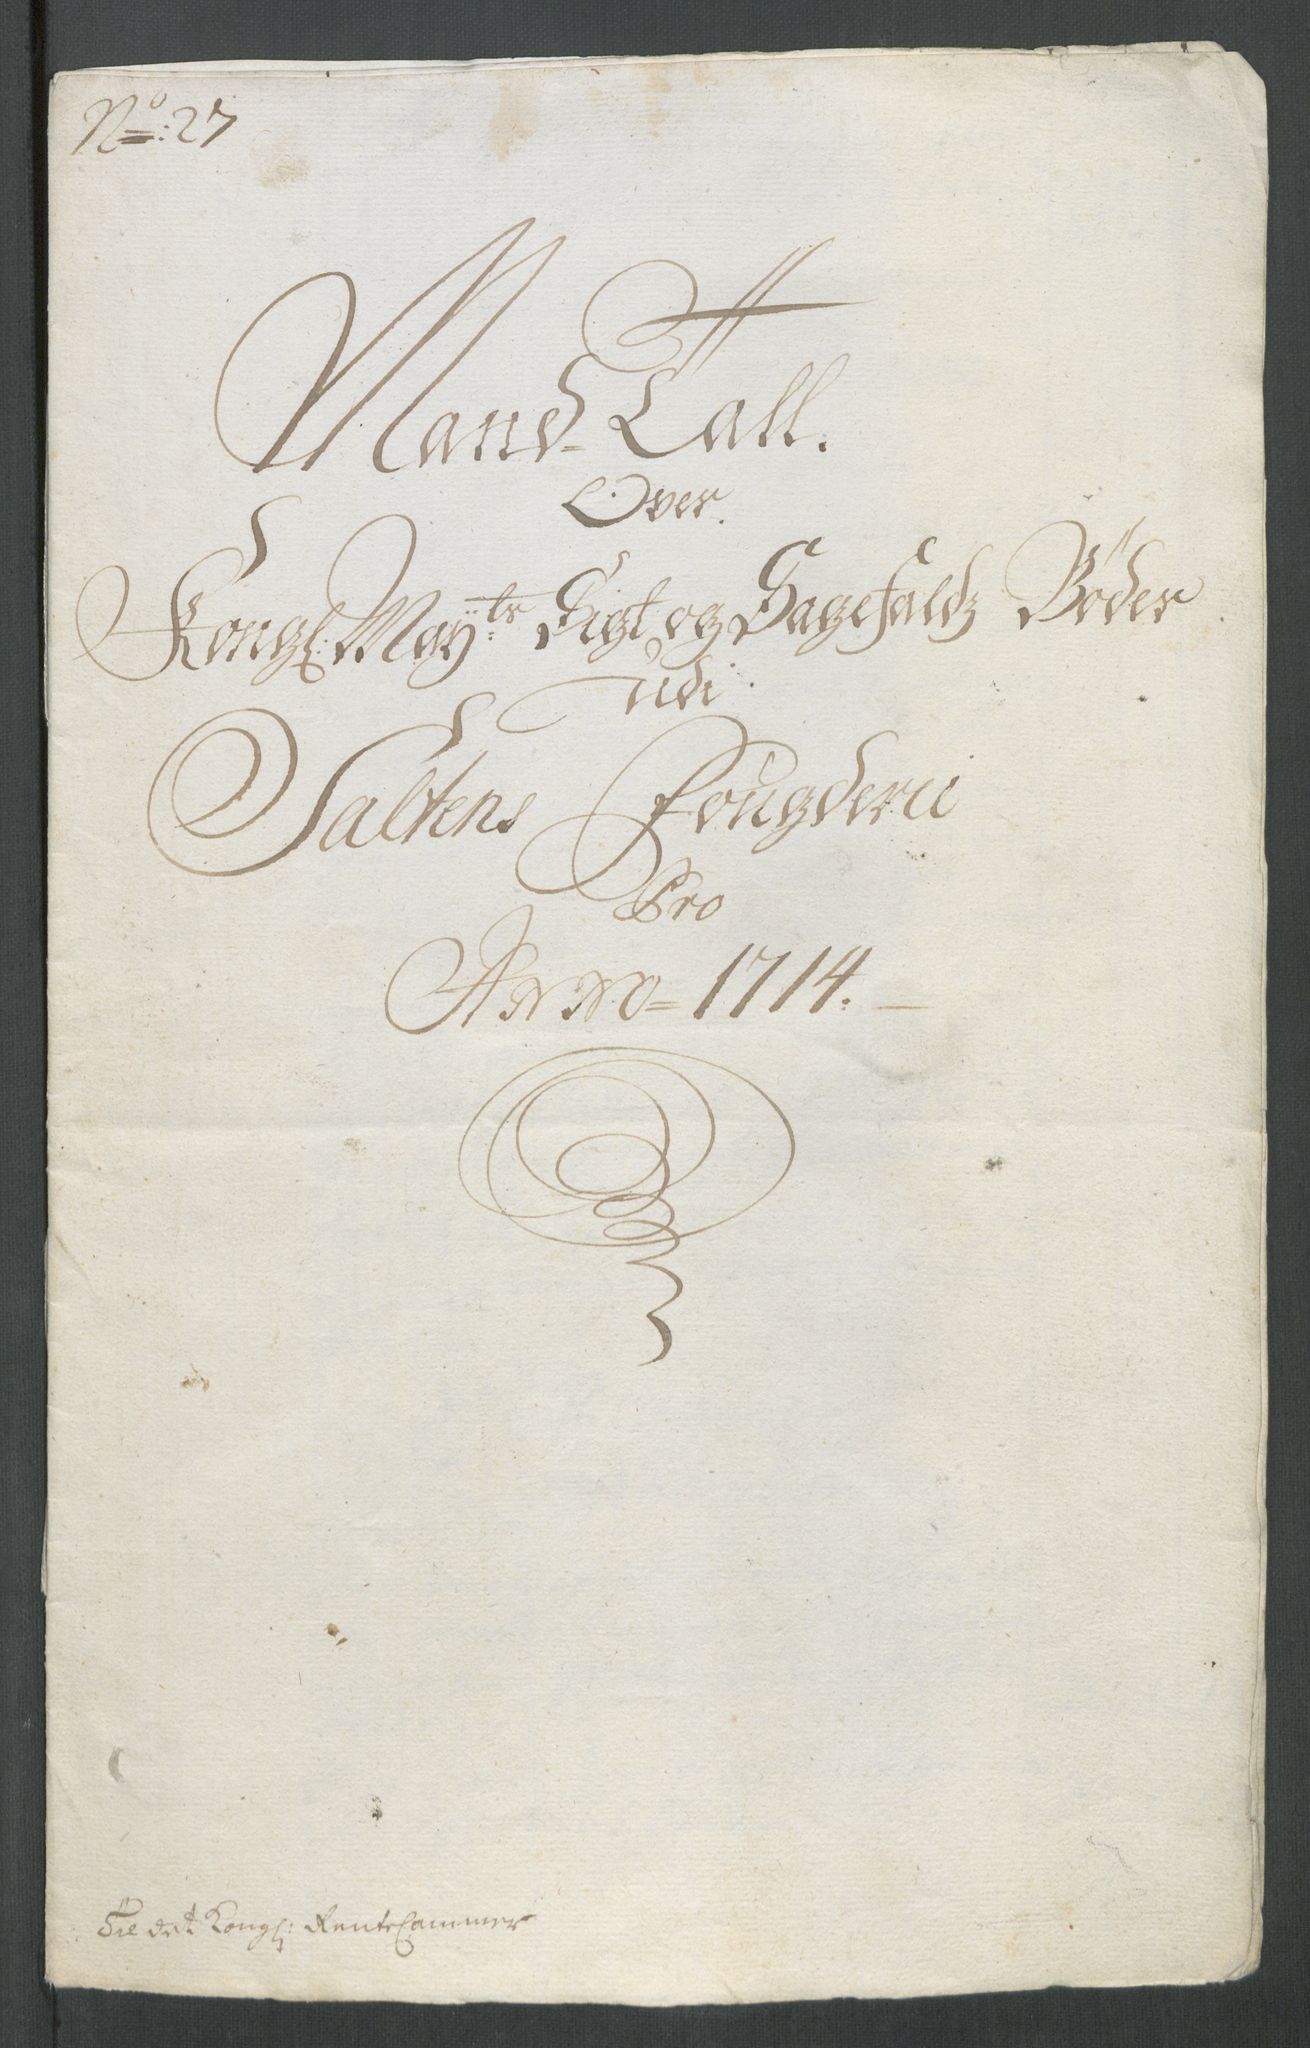 No: 27
Mand-Tall.
Over.
Kongl: Mayts Sigt og Sagefaldz Bøder
udi
Saltens Fougderii
Pro
Anno = 1714.
Til det Kongl: RenteCammer